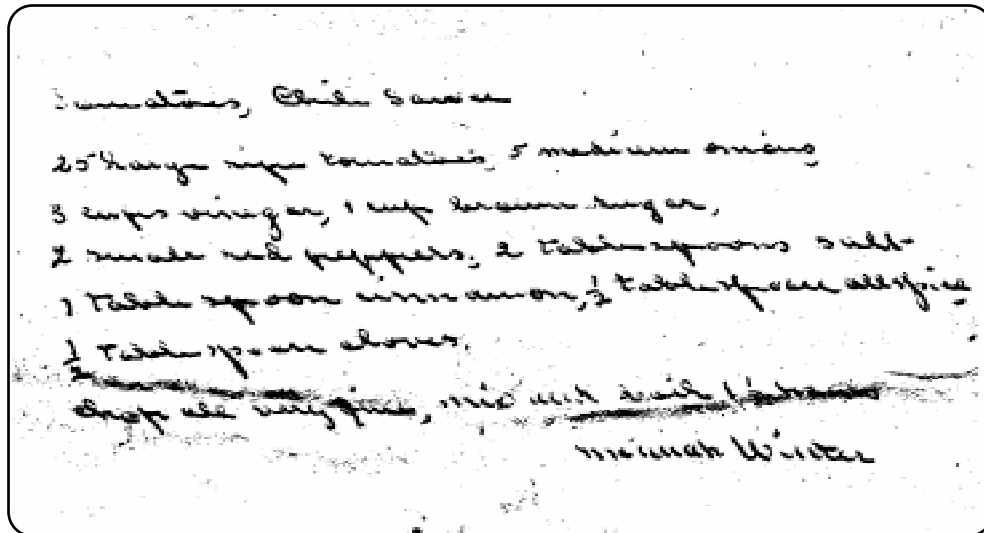 Tomatoes, Chili Sauce
25 large ripe tomatoes, 5 medium onions,
3 cups vinegar, 1 cup brown sugar,
2 small red peppers, 2 table spoons salt
1 table spoon cinnamon, ½ table spoon allspice
½ table spoon cloves.
Chop all very fine, mix and boil
Winter